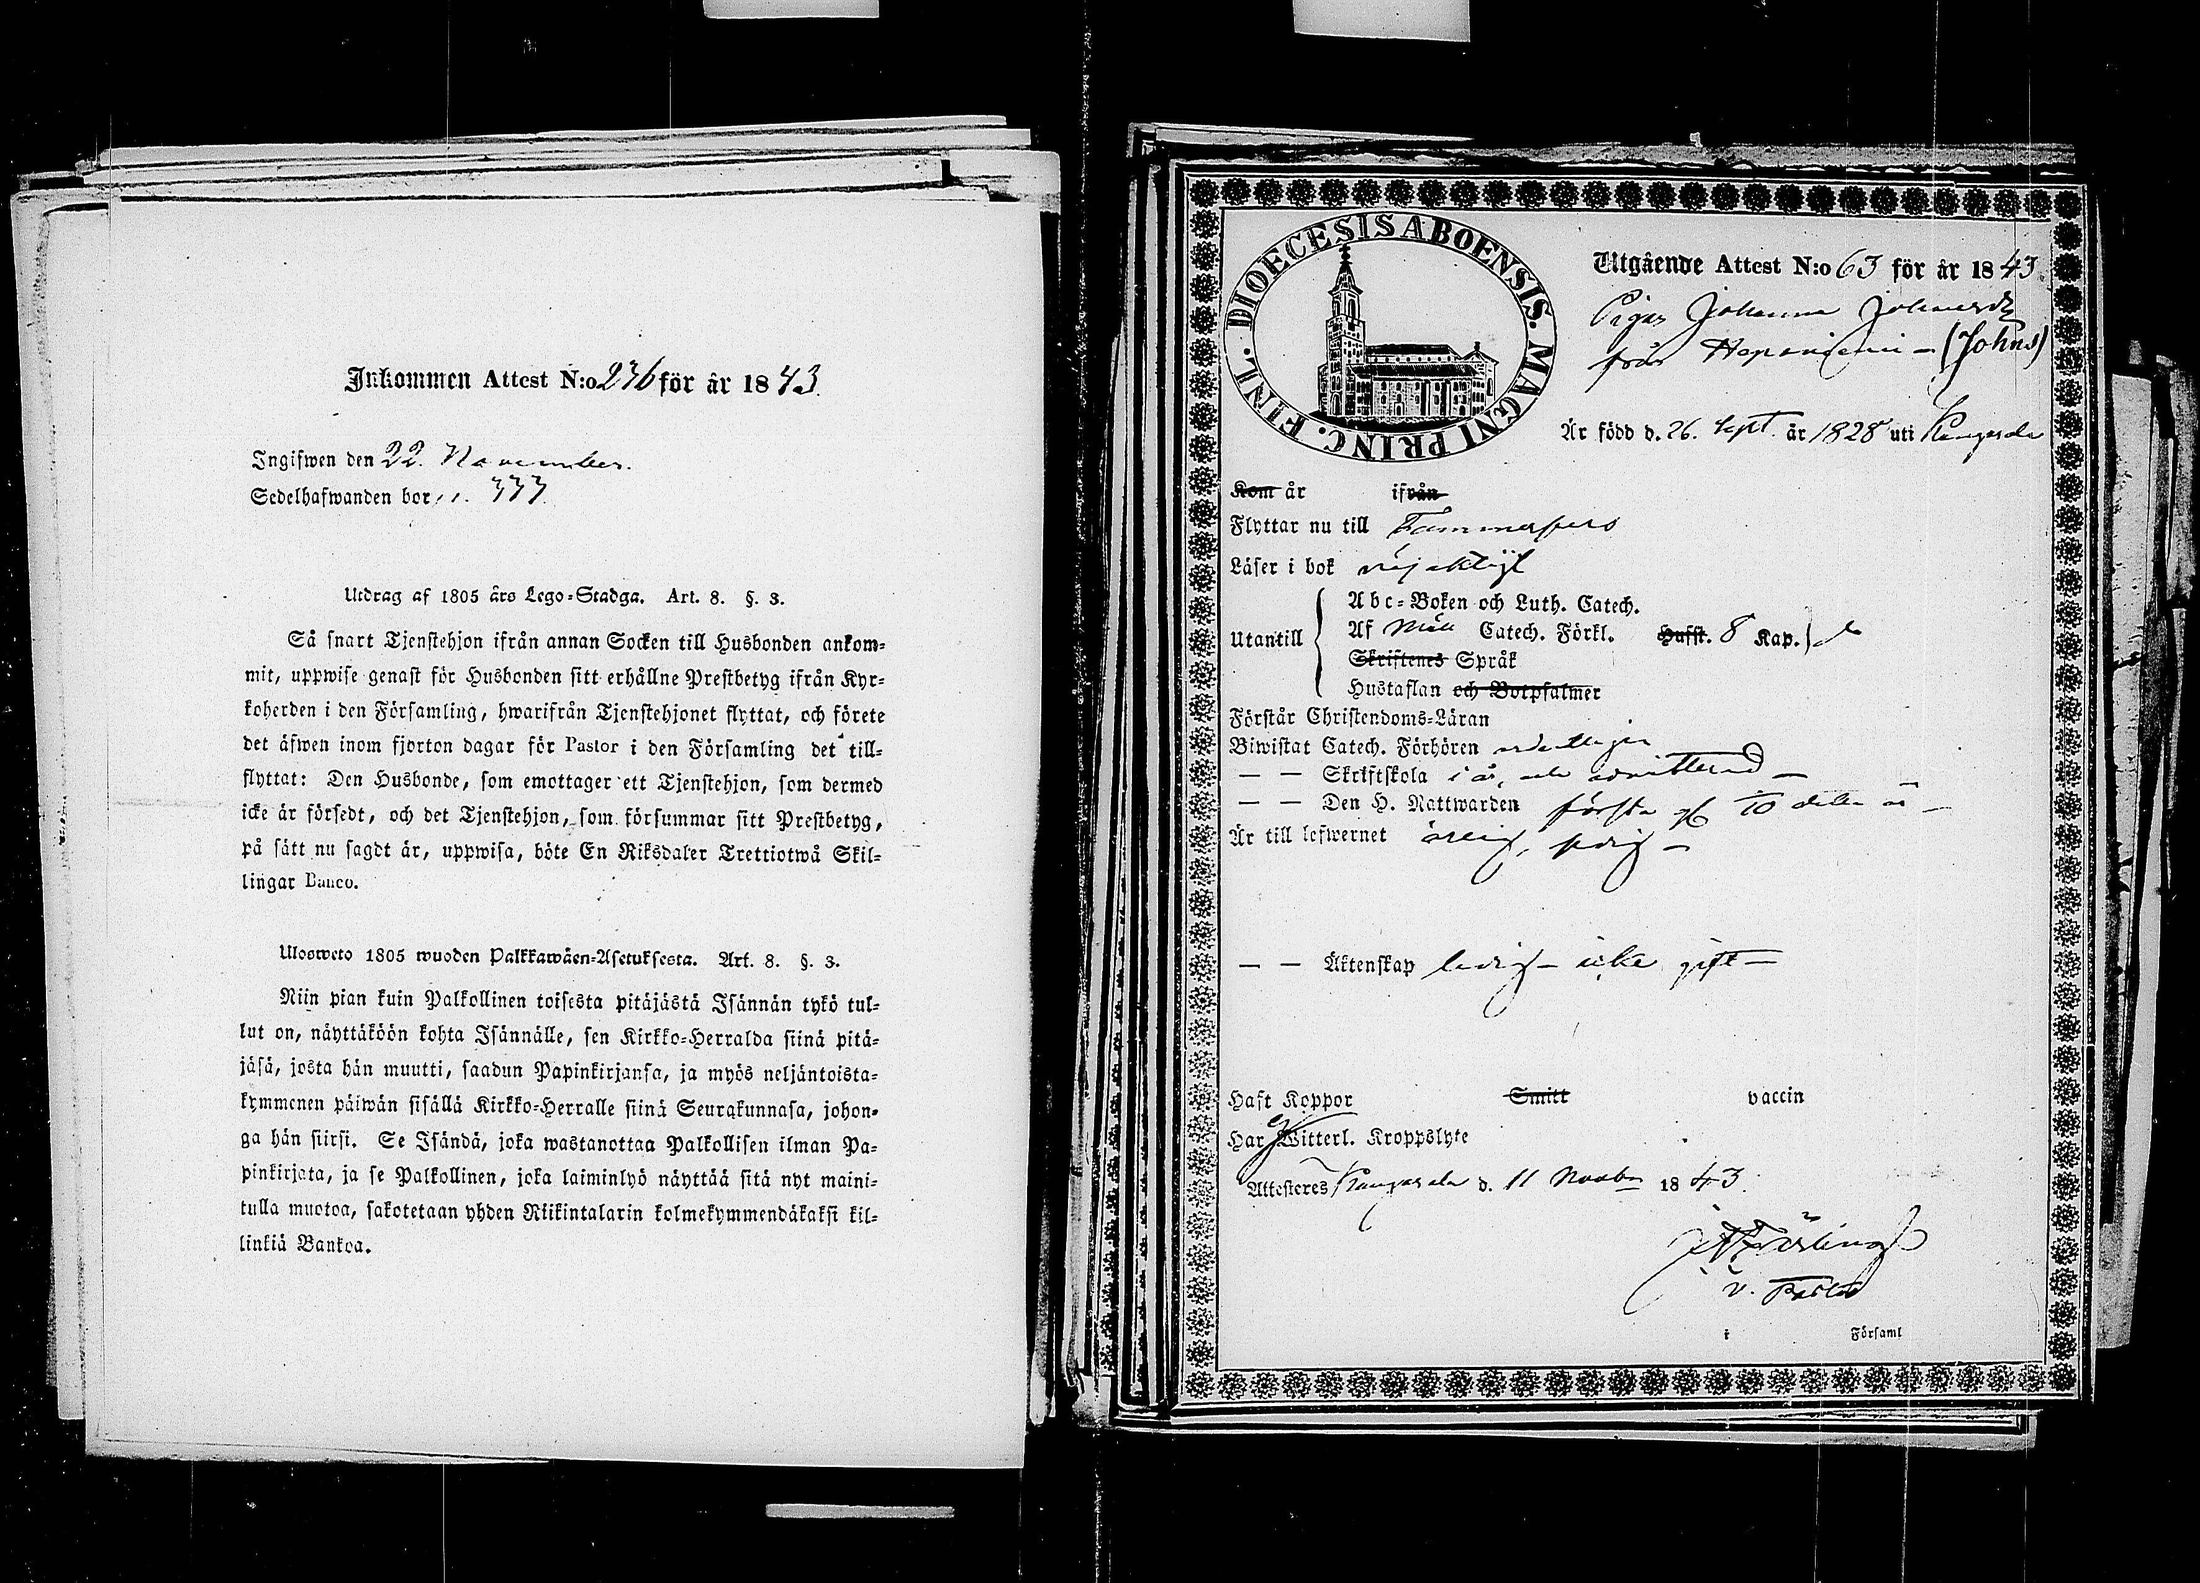 Inkommen Attest N:o 236 för år 1843.
Ingifwen den 22. November.
Sedelhafwanden bor 333
Utdrag af 1805 års Lego-Stadga. Art. 8. §. 3.
Så snart Tjenstehjon ifrån annan Socken till Husbonden ankom-
mit, uppwise genast för Husbonden sitt erhållne Prestbetyg ifrån Kyr-
koherden i den Församling, hwarifrån Tjenstehjonet flyttat, och förete
det äfwen inom fjorton dagar för Pastor i den Församling det till-
flyttat: Den Husbonde, som emottager ett Tjenstehjon, som dermed
icke är försedt, och det Tjenstehjon, som försummar sitt Prestbetyg,
på sätt nu sagdt är, uppwisa, böte En Riksdaler Trettiotwå Skil-
lingar Banco.
Ulosweto 1805 wuoden Palkkawäen-Asetuksesta. Art. 8. §. 3.
Niin pian kuin Palkollinen toisesta pitäjästä Isännän tykö tul-
lut on, näyttäköön kohta Isännälle, sen Kirkko-Herralda siinä pitä-
jäsä, josta hän muutti, saadun Papinkirjansa, ja myös neljäntoista-
kymmenen päiwän sisällä Kirkko-Herralle siinä Seurakunnasa, johon-
ga hän siirsi. Se Isändä, joka wastanottaa Palkollisen ilman Pa-
pinkirjata, ja se Palkollinen, joka laiminlyö näyttää sitä nyt maini-
tulla muotoa, sakotetaan yhden Riikintalarin kolmekymmendäkaksi kil-
linkiä Bankoa.
DIOECESIS ABOENSIS. MAGNI PRINC. FINL.
Utgående Attest N:o 63 för år 1843.
Pigan Johanna Johansdr
från Haponiemi - (Johns)
Är född d. 26. Sept. år 1828 uti Kangasala
Kom år ifrån
Flyttar nu till Tammerfors
Läser i bok nöjaktigt
Abc-Boken och Luth. Catech.
Utantill Af Catech. Förkl. Hufst. 8 Kap.
Skriftenes Språk
Hustaflan och Botpsalmer
Förstår Christendoms-Läran
Biwistat Catech. Förhören ordentligen
— — Skriftskola i år, och admitterad —
— — Den H. Nattwarden första 10 dennes —
Är till lefwernet ärlig, frejd —
— — Äktenskap ledig — icke gift —
Haft Koppor Smitt vaccin
Har Witterl. Kroppslyte
Attesteres Kangasala d. 11 Novbr 1843.
v. Pastor
i Församl